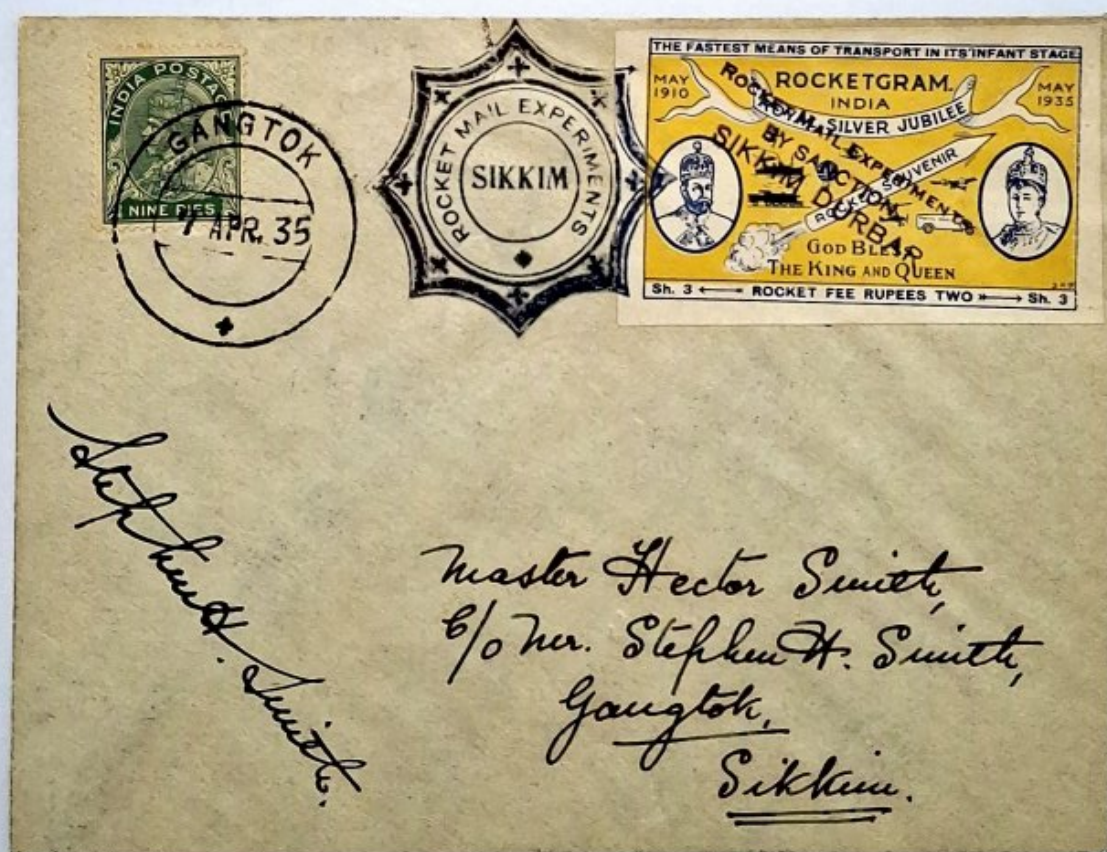 INDIA POSTAGE
NINE PIES
GANGTOK
7 APR. 35
ROCKET MAIL EXPERIMENTS
SIKKIM
THE FASTEST MEANS OF TRANSPORT IN ITS INFANT STAGE
MAY 1910
ROCKETGRAM.
INDIA
SILVER JUBILEE
MAY 1935
ROCKET MAIL EXPERIMENTS
BY SANCTION
SIKKIM DURBAR
ROCKET SOUVENIR
GOD BLESS
THE KING AND QUEEN
Sh. 3 ROCKET FEE RUPEES TWO Sh. 3
Stephen H. Smith.
Master Hector Smith,
C/o Mr. Stephen H. Smith,
Gangtok,
Sikkim.